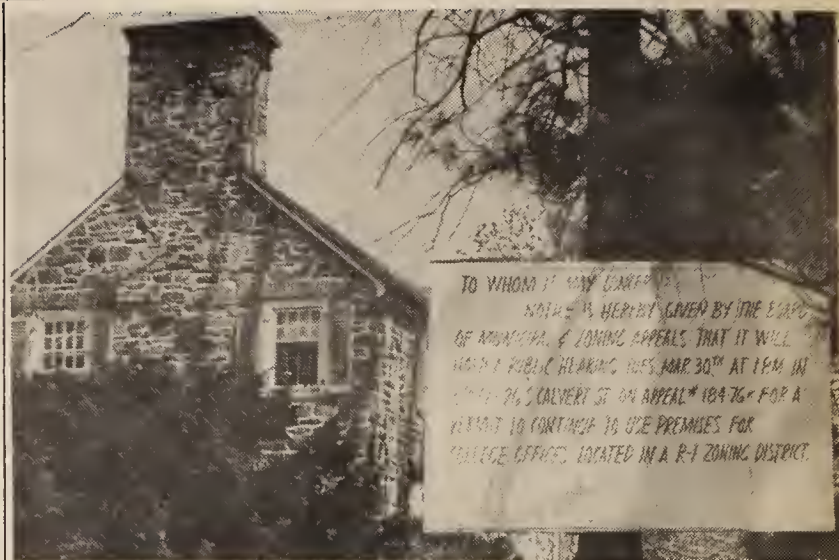 TO WHOM IT MAY CONCERN
NOTICE IS HEREBY GIVEN BY THE BOARD
OF MUNICIPAL & ZONING APPEALS THAT IT WILL
HOLD A PUBLIC HEARING TUES. MAR. 30TH AT 1 P.M. IN
26 S CALVERT ST. ON APPEAL # FOR A
PERMIT TO CONTINUE TO USE PREMISES FOR
COLLEGE OFFICES LOCATED IN A R-1 ZONING DISTRICT.